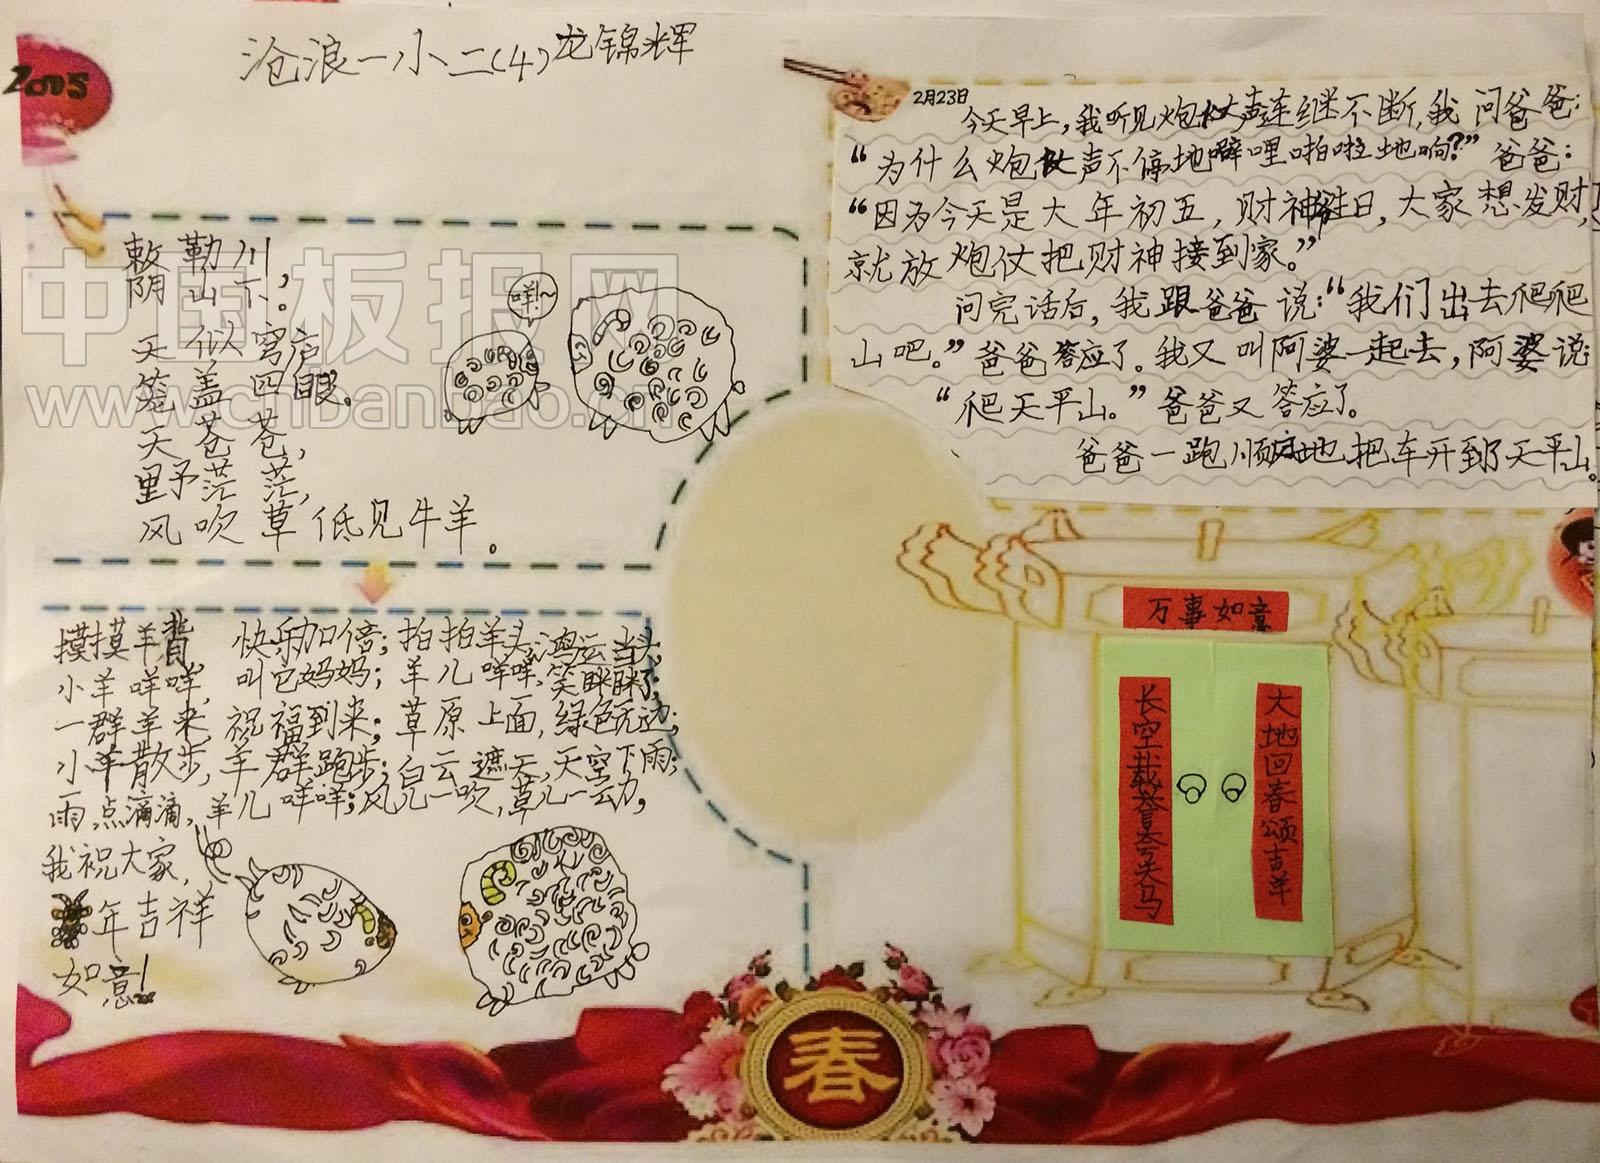 沧浪一小二(4)龙锦辉
敕勒川,
阴山下。
天似穹庐
笼盖四眼。
天苍苍,
野茫茫,
风吹草低见牛羊。
咩!~
摸摸羊背 快乐加倍;拍拍羊头,鸿运当头,
小羊咩咩,叫它妈妈;羊儿咩咩,笑眯眯了;
一群羊来,祝福到来;草原上面,绿色无边;
小羊散步,羊群跑步;白云遮天,天空下雨;
雨点滴滴,羊儿咩咩;风儿一吹,草儿一动,
我祝大家,
年吉祥
如意!
2月23日
今天早上,我听见炮仗声连继不断,我问爸爸:
“为什么炮仗声不停地噼哩啪啦地响?”爸爸:
“因为今天是大年初五,财神生日,大家想发财,
就放炮仗把财神接到家。”
问完话后,我跟爸爸说:“我们出去爬爬
山吧。”爸爸答应了。我又叫阿婆一起去,阿婆说:
“爬天平山。”爸爸又答应了。
爸爸一跑顺地把车开到了天平山。
万事如意
长空载誉夸天马
大地回春颂吉羊
春
中国板报网
www.chibanbao.cn